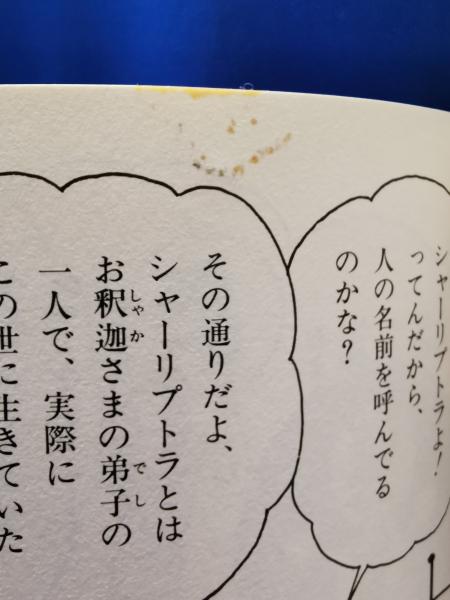 シャーリプトラよ！
ってんだから、
人の名前を呼んでる
のかな？
その通りだよ、
シャーリプトラとは
お釈迦さまの弟子の
しゃか
でし
一人で、実際に
この世に生きていた